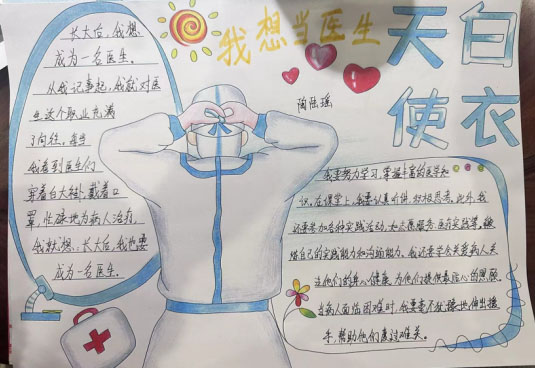 我想当医生
白衣
天使
陶陈瑶
长大后，我想
成为一名医生。
从我记事起，我就对医
生这个职业充满
了向往。每当
我看到医生们
穿着白大褂，戴着口
罩，忙碌地为病人治疗，
我就想：长大后，我也要
成为一名医生。
我要努力学习，掌握丰富的医学知
识。在课堂上，我要认真听讲，积极思考。此外，我
还要参加各种实践活动，如志愿服务、医疗实践等，锻
炼自己的实践能力和沟通能力。我还要学会关爱病人，关
注他们的身心健康，为他们提供最贴心的照顾。
当病人面临困难时，我要毫不犹豫地伸出援
手，帮助他们度过难关。